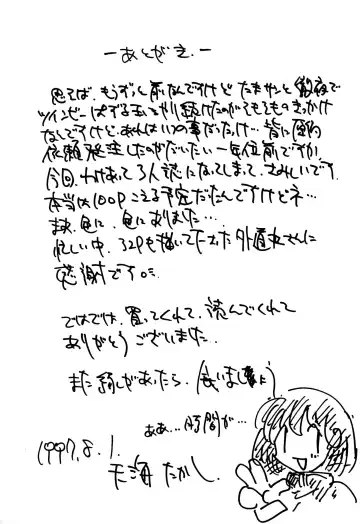 －あとがき.－
思えば、もうずいぶん前なんですけど たまサンと徹夜で
ツインビーぱずるだまをやり続けたのがそもそものきっかけ
なんですけど、あれはいつの事だったけ…皆に原稿
依頼発生したのがだいたい一年位前ですか、
今回、わけあって3人誌になってしまって、さみしいです。
本当は100Pこえる予定だったんですけどネ…
まぁ、色々と、色々ありました…
忙しい中、32Pも描いて下さった外道丸さんに
感謝です。
ではでは、買ってくれて、読んでくれて
ありがとうございました。
また縁があったら、会いましょう
ああ…時間が…
1997.8.1.
天海 たかし.